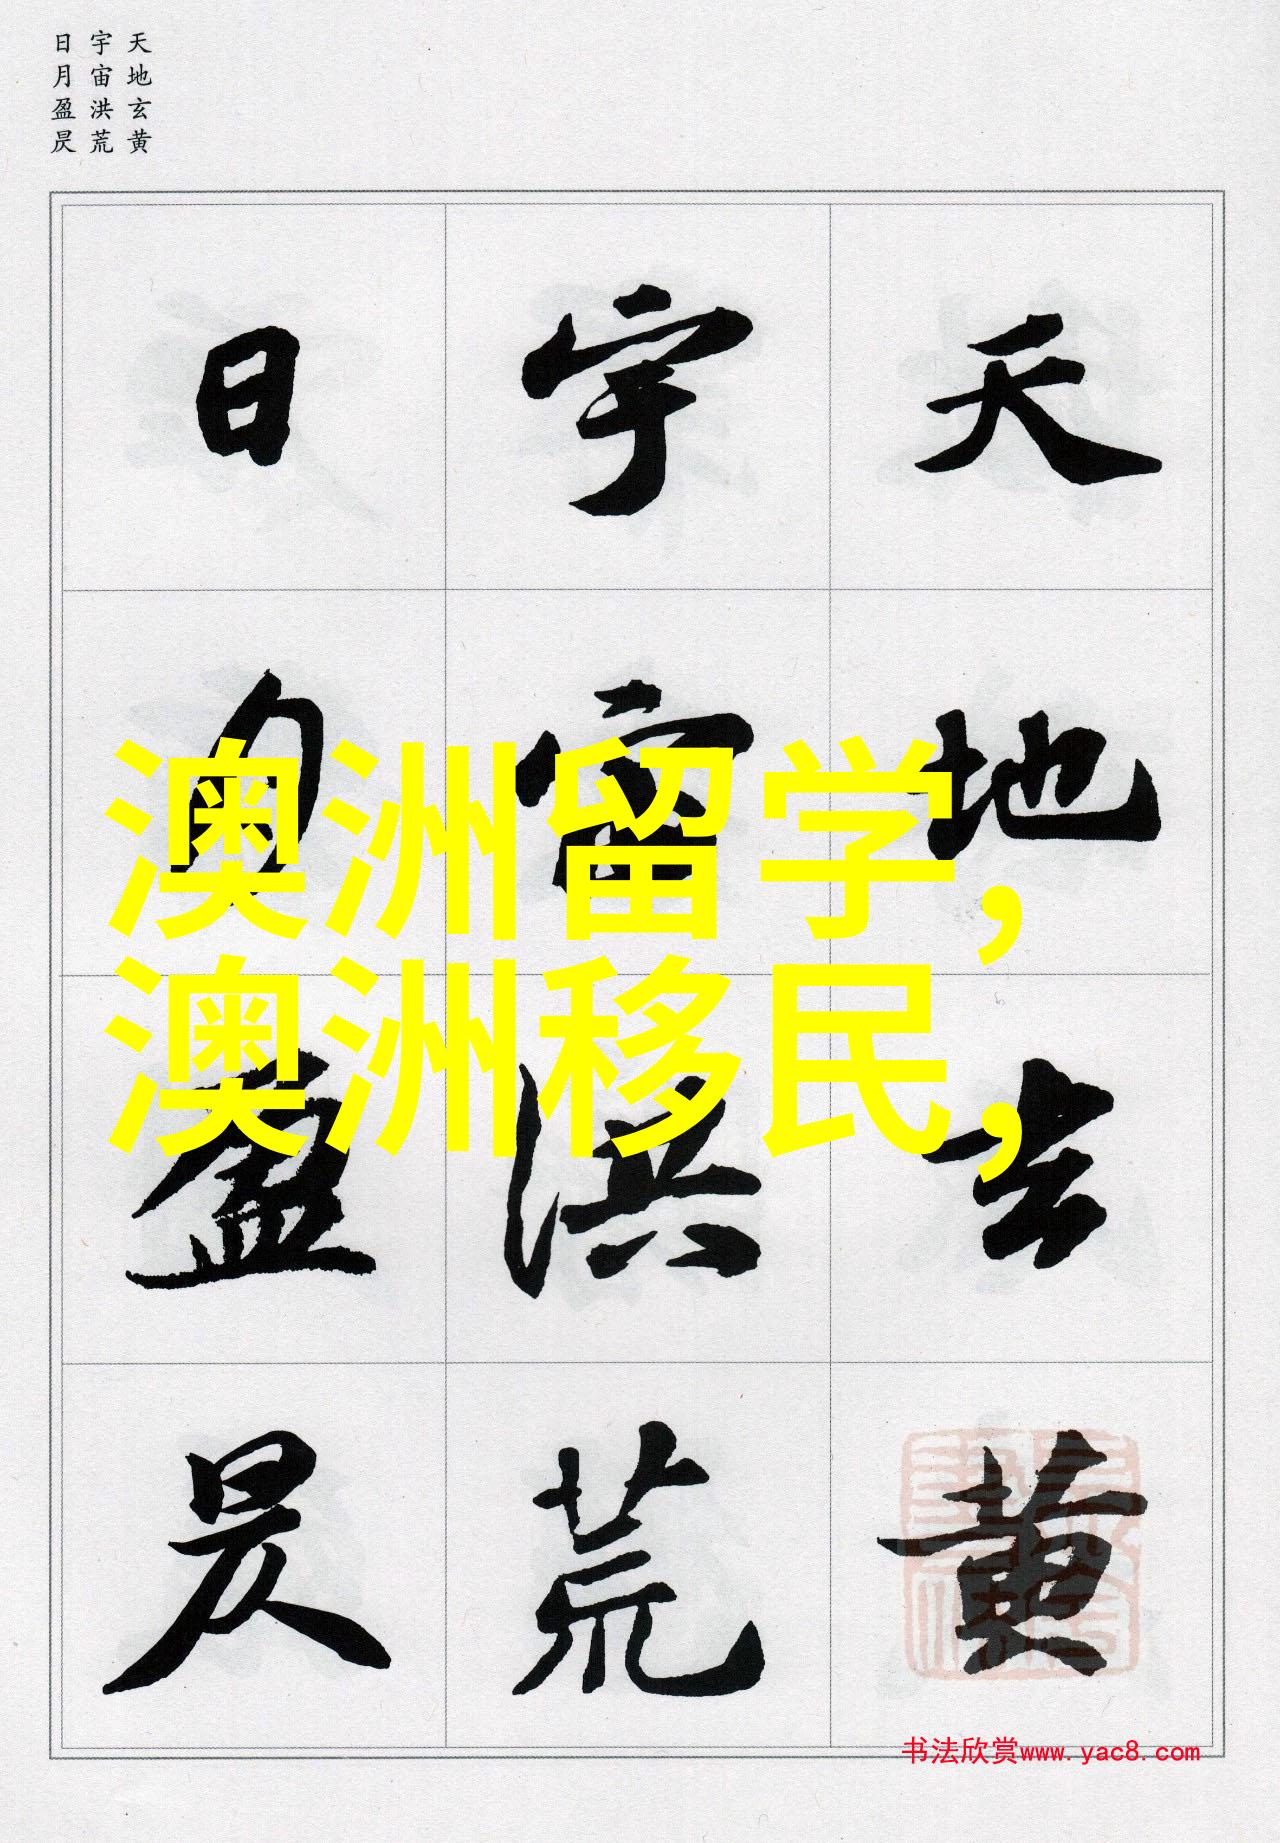 天地玄黄
宇宙洪荒
日月盈昃
天地玄黄
宇宙洪荒
日月盈昃
澳洲留学，
澳洲移民，
书法欣赏www.yac8.com